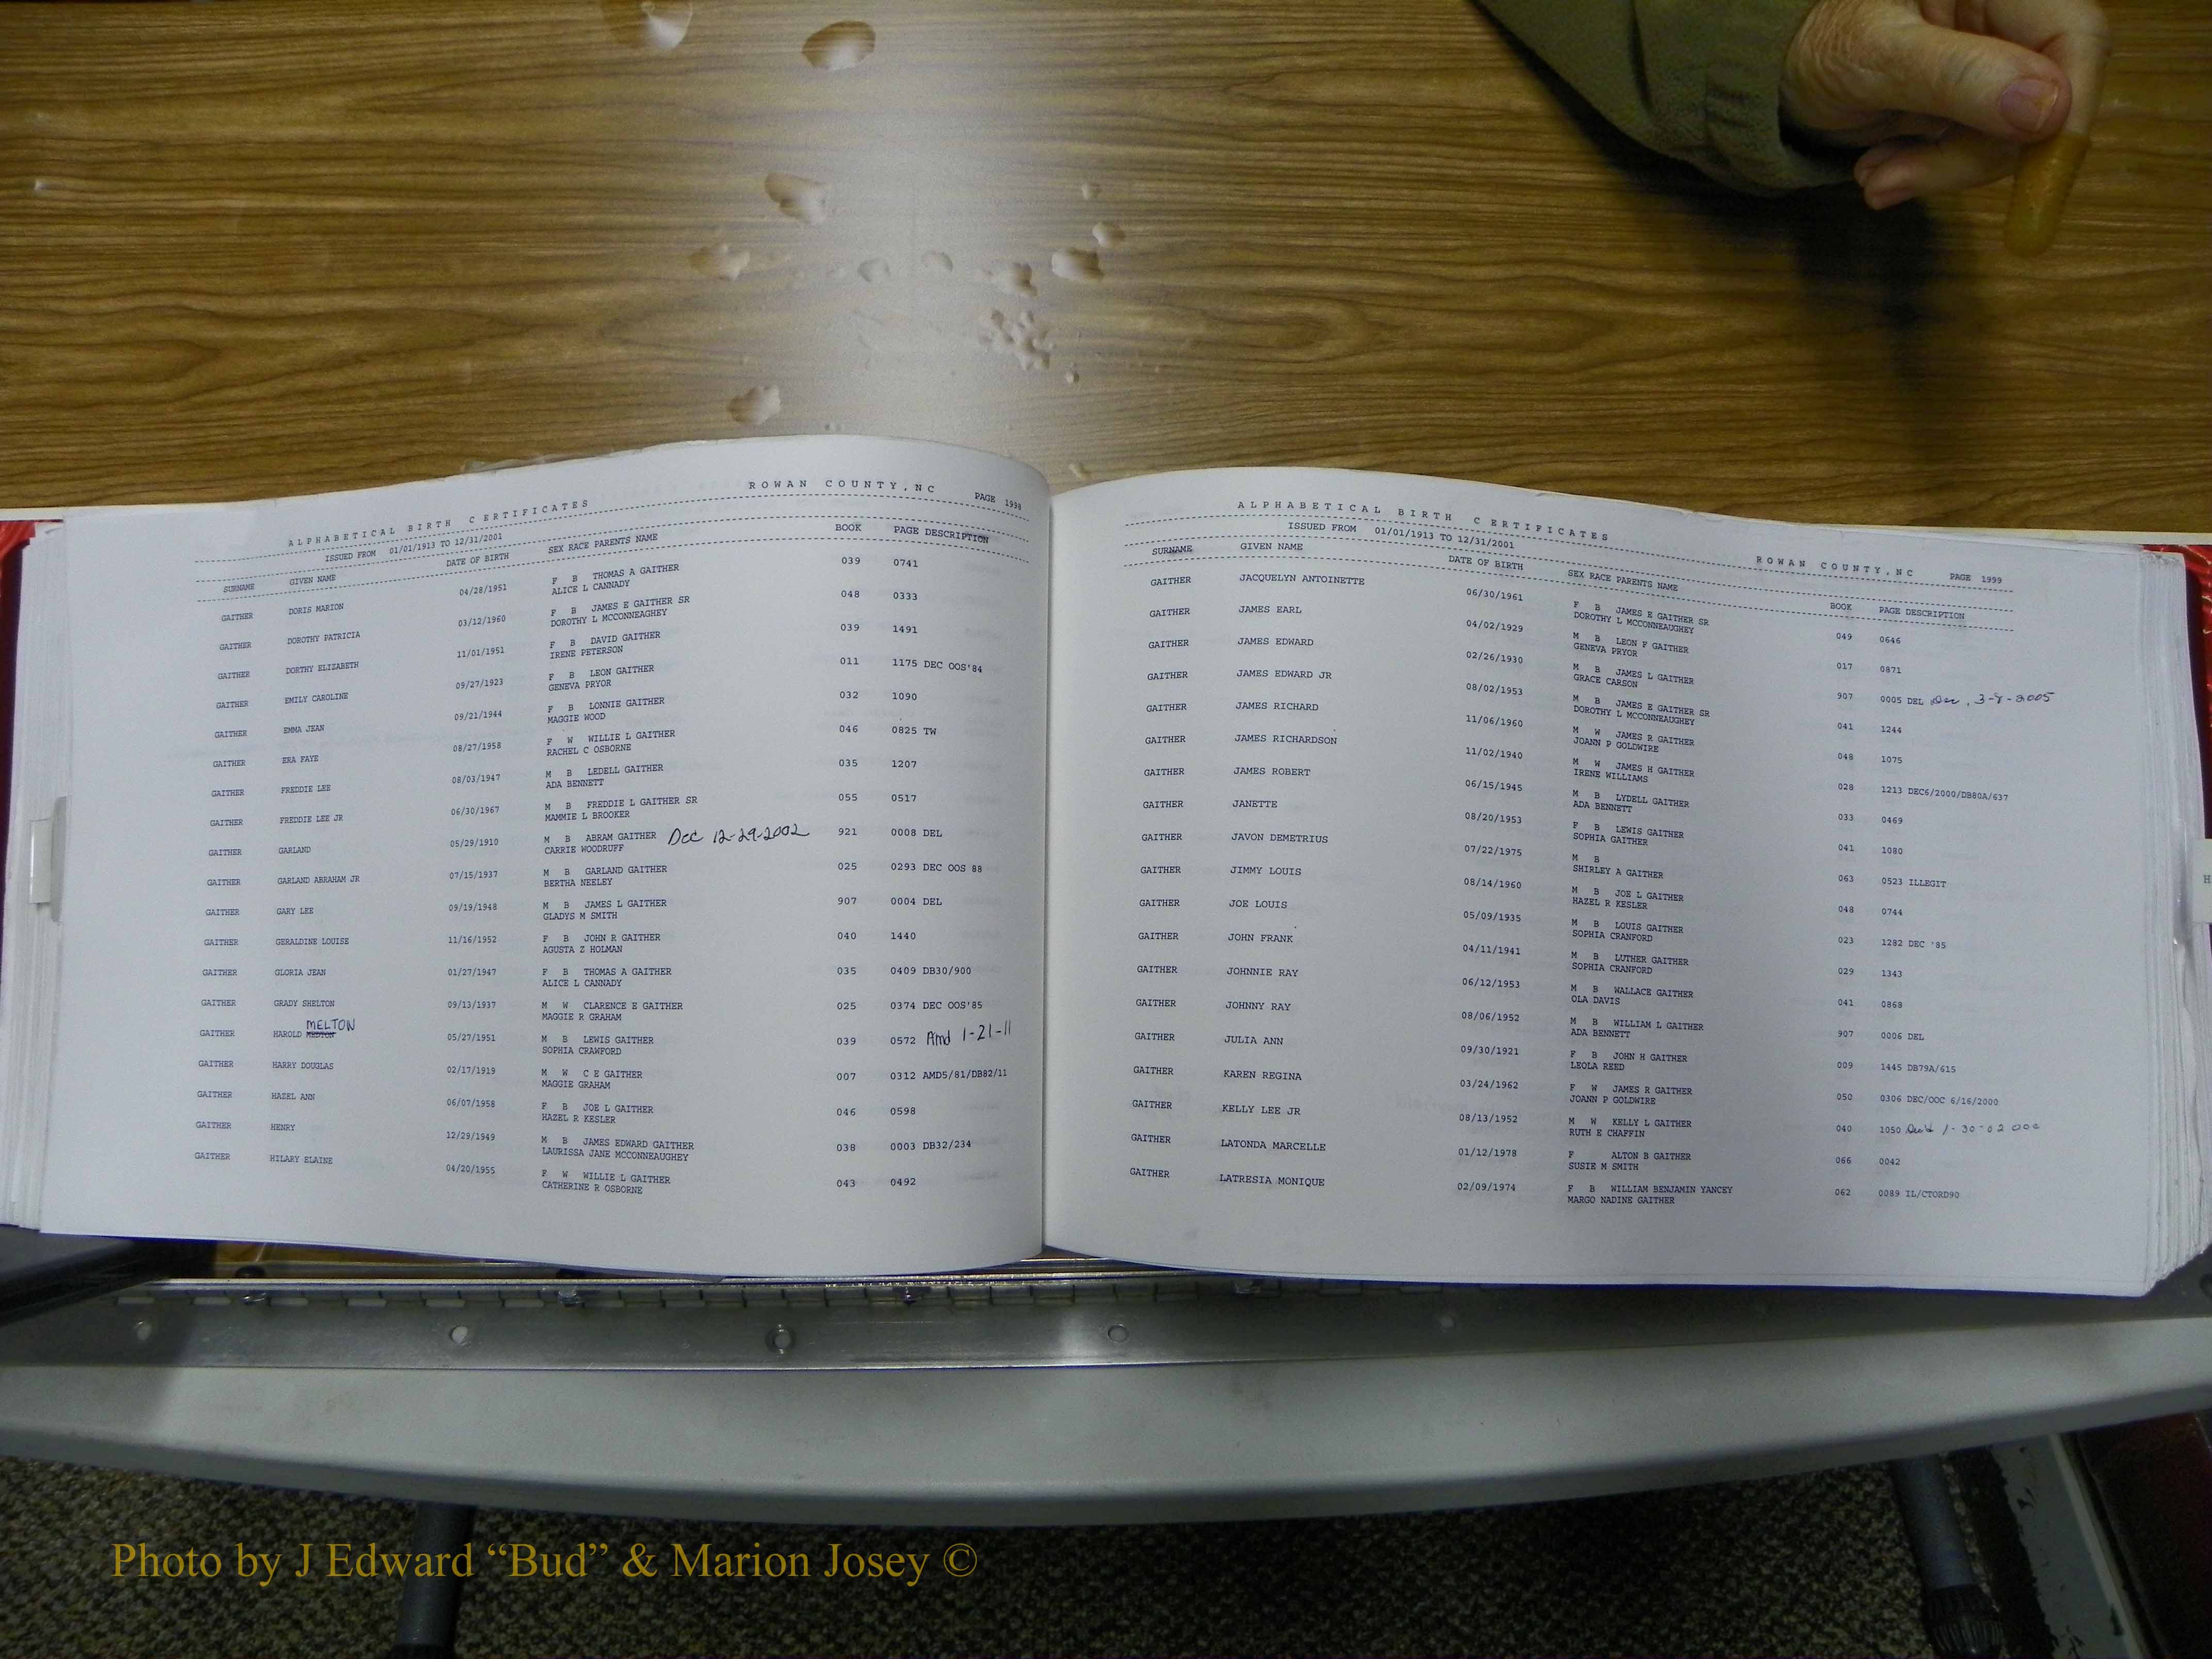 ALPHABETICAL BIRTH CERTIFICATES ROWAN COUNTY,NC PAGE 1998
ISSUED FROM 01/01/1913 TO 12/31/2001
SURNAME GIVEN NAME DATE OF BIRTH SEX RACE PARENTS NAME BOOK PAGE DESCRIPTION
GAITHER DORIS MARION 04/28/1951 F B THOMAS A GAITHER 039 0741
ALICE L CANNADY
GAITHER DOROTHY PATRICIA 03/12/1960 F B JAMES E GAITHER SR 048 0333
DOROTHY L MCCONNEAGHEY
GAITHER DORTHY ELIZABETH 11/01/1951 F B DAVID GAITHER 039 1491
IRENE PETERSON
GAITHER EMILY CAROLINE 09/27/1923 F B LEON GAITHER 011 1175 DEC OOS'84
GENEVA PRYOR
GAITHER EMMA JEAN 09/21/1944 F B LONNIE GAITHER 032 1090
MAGGIE WOOD
GAITHER ERA FAYE 08/27/1958 F W WILLIE L GAITHER 046 0825 TW
RACHEL C OSBORNE
GAITHER FREDDIE LEE 08/03/1947 M B LEDELL GAITHER 035 1207
ADA BENNETT
GAITHER FREDDIE LEE JR 06/30/1967 M B FREDDIE L GAITHER SR 055 0517
MAMMIE L BROOKER
GAITHER GARLAND 05/29/1910 M B ABRAM GAITHER Dec 12-29-2002 921 0008 DEL
CARRIE WOODRUFF
GAITHER GARLAND ABRAHAM JR 07/15/1937 M B GARLAND GAITHER 025 0293 DEC OOS 88
BERTHA NEELEY
GAITHER GARY LEE 09/19/1948 M B JAMES L GAITHER 907 0004 DEL
GLADYS M SMITH
GAITHER GERALDINE LOUISE 11/16/1952 F B JOHN R GAITHER 040 1440
AGUSTA Z HOLMAN
GAITHER GLORIA JEAN 01/27/1947 F B THOMAS A GAITHER 035 0409 DB30/900
ALICE L CANNADY
GAITHER GRADY SHELTON 09/13/1937 M W CLARENCE E GAITHER 025 0374 DEC OOS'85
MAGGIE R GRAHAM
MELTON
GAITHER HAROLD 05/27/1951 M B LEWIS GAITHER 039 0572 Amd 1-21-11
SOPHIA CRAWFORD
GAITHER HARRY DOUGLAS 02/17/1919 M W C E GAITHER 007 0312 AMD5/81/DB82/11
MAGGIE GRAHAM
GAITHER HAZEL ANN 06/07/1958 F B JOE L GAITHER 046 0598
HAZEL R KESLER
GAITHER HENRY 12/29/1949 M B JAMES EDWARD GAITHER 038 0003 DB32/234
LAURISSA JANE MCCONNEAUGHEY
GAITHER HILARY ELAINE 04/20/1955 F W WILLIE L GAITHER 043 0492
CATHERINE R OSBORNE
ALPHABETICAL BIRTH CERTIFICATES ROWAN COUNTY,NC PAGE 1999
ISSUED FROM 01/01/1913 TO 12/31/2001
SURNAME GIVEN NAME DATE OF BIRTH SEX RACE PARENTS NAME BOOK PAGE DESCRIPTION
GAITHER JACQUELYN ANTOINETTE 06/30/1961 F B JAMES E GAITHER SR 049 0646
DOROTHY L MCCONNEAUGHEY
GAITHER JAMES EARL 04/02/1929 M B LEON F GAITHER 017 0871
GENEVA PRYOR
GAITHER JAMES EDWARD 02/26/1930 M B JAMES L GAITHER 907 0005 DEL Dec, 3-8-2005
GRACE CARSON
GAITHER JAMES EDWARD JR 08/02/1953 M B JAMES E GAITHER SR 041 1244
DOROTHY L MCCONNEAUGHEY
GAITHER JAMES RICHARD 11/06/1960 M W JAMES R GAITHER 048 1075
JOANN P GOLDWIRE
GAITHER JAMES RICHARDSON 11/02/1940 M W JAMES H GAITHER 028 1213 DEC6/2000/DB80A/637
IRENE WILLIAMS
GAITHER JAMES ROBERT 06/15/1945 M B LYDELL GAITHER 033 0469
ADA BENNETT
GAITHER JANETTE 08/20/1953 F B LEWIS GAITHER 041 1080
SOPHIA GAITHER
GAITHER JAVON DEMETRIUS 07/22/1975 M B 063 0523 ILLEGIT
SHIRLEY A GAITHER
GAITHER JIMMY LOUIS 08/14/1960 M B JOE L GAITHER 048 0744
HAZEL R KESLER
GAITHER JOE LOUIS 05/09/1935 M B LOUIS GAITHER 023 1282 DEC '85
SOPHIA CRANFORD
GAITHER JOHN FRANK 04/11/1941 M B LUTHER GAITHER 029 1343
SOPHIA CRANFORD
GAITHER JOHNNIE RAY 06/12/1953 M B WALLACE GAITHER 041 0868
OLA DAVIS
GAITHER JOHNNY RAY 08/06/1952 M B WILLIAM L GAITHER 907 0006 DEL
ADA BENNETT
GAITHER JULIA ANN 09/30/1921 F B JOHN H GAITHER 009 1445 DB79A/615
LEOLA REED
GAITHER KAREN REGINA 03/24/1962 F W JAMES R GAITHER 050 0306 DEC/OOC 6/16/2000
JOANN P GOLDWIRE
GAITHER KELLY LEE JR 08/13/1952 M W KELLY L GAITHER 040 1050 1-30-02
RUTH E CHAFFIN
GAITHER LATONDA MARCELLE 01/12/1978 F ALTON B GAITHER 066 0042
SUSIE M SMITH
GAITHER LATRESIA MONIQUE 02/09/1974 F B WILLIAM BENJAMIN YANCEY 062 0089 IL/CTORD90
MARGO NADINE GAITHER
H
Photo by J Edward “Bud” & Marion Josey ©